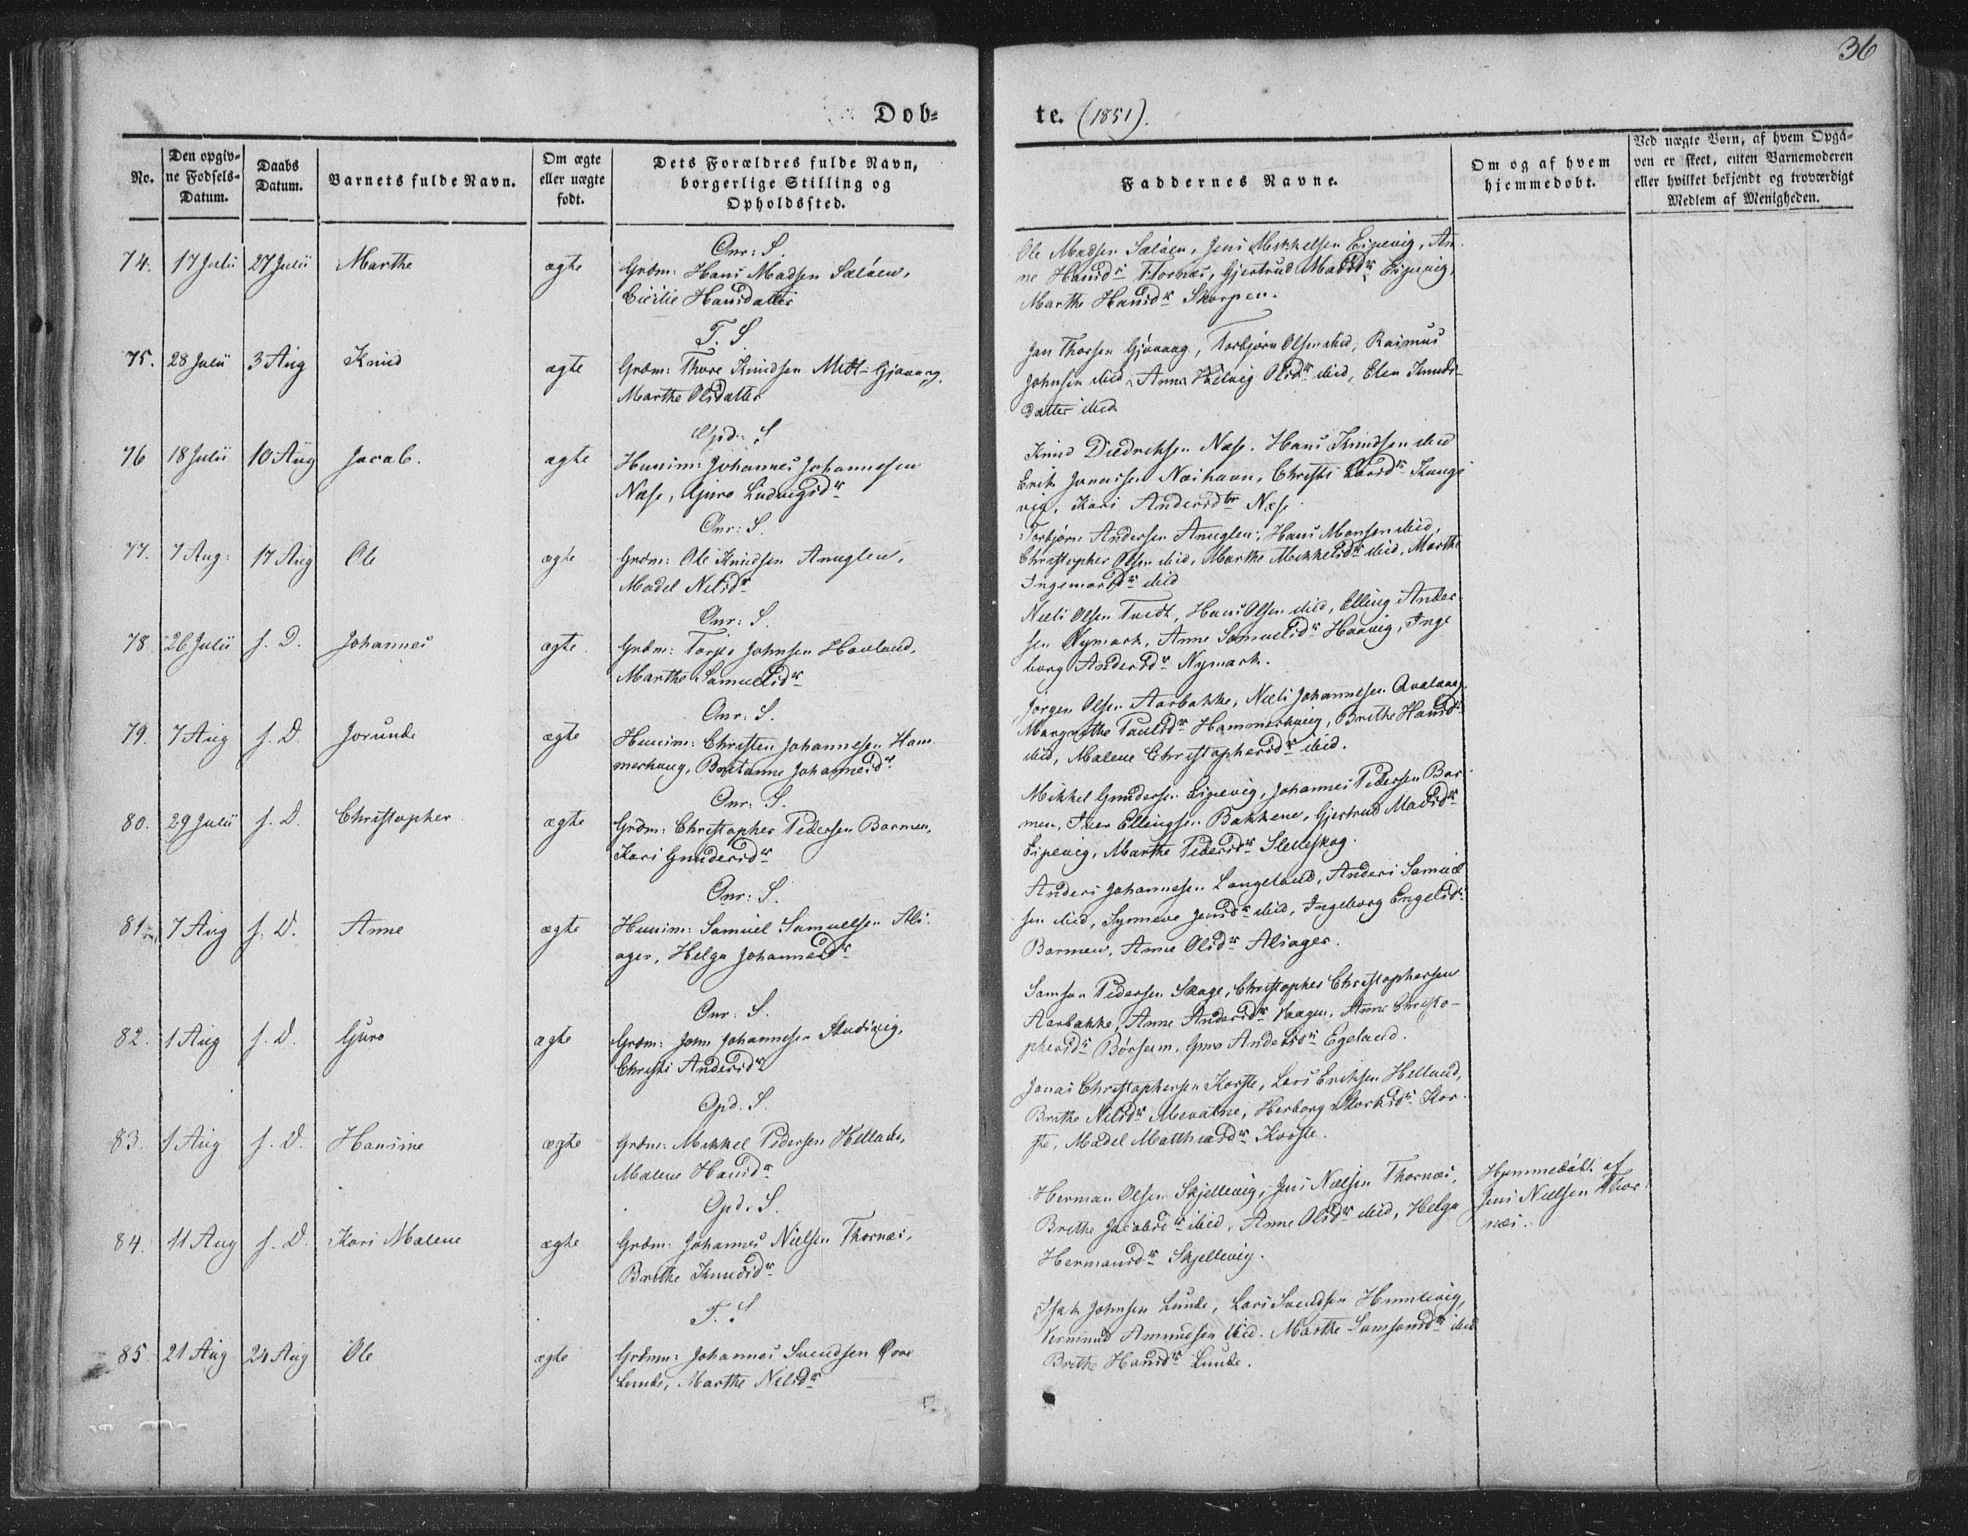 36
Døb-
te. (1851).
No.
Den opgiv-
ne Fødsels-
Datum.
Daabs
Datum.
Barnets fulde Navn.
Om ægte
eller uægte
født.
Dets Forældres fulde Navn,
borgerlige Stilling og
Opholdssted.
Faddernes Navne.
Om og af hvem
hjemmedøbt.
Ved uægte Børn, af hvem Opgi-
ven er skeet, enten Barnemoderen
eller hvilket bekjendt og troværdigt
Medlem af Menigheden.
Onr: S.
74. 17 Julii 27 Julii Marthe ægte Grdm: Hans Madsen Saløen,
Cicilie Hansdatter
Ole Madsen Saløen, Jens Mikkelsen Espevig, An-
ne Hansdr Thornæs, Gjertrud Madsdr Espevig,
Marthe Hansdr Skorpen.
T. S.
75. 28 Julii 3 Aug Knud ægte Grdm: Thore Knudsen Gjøvaag,
Marthe Olsdatter
Jan Thorsen Gjøvaag, Torbjørn Olsen ibid, Rasmus
Johnsen ibid, Anna Helvig Olsdr ibid, Elen Knuds-
datter ibid
Opd: S
76 18 Julii 10 Aug Jacob. ægte Huusm: Johannes Johannesen
Næse, Guro Ludvigsdr
Knud Diedriksen Næse. Hans Knudsen ibid
Erik Jonassen Næshavn, Christi Larsdr Kongs
vig, Kari Andersdtr Næse
Onr: S.
77. 7 Aug: 17 Aug Ole ægte Grdm: Ole Knudsen Anuglen,
Madel Nilsdr
Torbjørn Andersen Anuglen, Hans Monsen ibid,
Christopher Olsen ibid, Marthe Mikkelsdr ibid, Marthe
Ingemarsdr ibid
Onr: S.
78. 26 Julii s. D. Johannes ægte Grdm: Torjer Johnsen Hovland,
Marthe Samuelsdr
Niels Olsen Tvedt, Hans Olsen ibid, Elling Ander-
sen Nymark, Anne Samuelsdr Haavig, Inge
borg Andersdr Nymark.
Onr: S.
79. 7 Aug s. D. Jorunde ægte Huusm: Christen Johannesen Ham-
merhaug, Britanne Johannesdr
Jørgen Olsen Aarbakke, Niels Johannesen
Margrethe Paulsdr Hammerhaug, Brithe Hansdr
ibid, Malene Christophersdr ibid.
Onr: S.
80. 29 Julii s. D. Christopher ægte Grdm: Christopher Pedersen Barmen,
Kari Gundersdr
Mikkel Gundersen Espevig, Johannes Pedersen Bar-
men, Iver Ellingsen Bakkene, Gjertrud Madsdr
Espevig, Marthe Pedersdr Sletteskog.
Onr: S.
81. 7 Aug s. D. Anne ægte Huusm: Samuel Samuelsen Als-
ager, Helga Johannesdr
Anders Johannesen Langeland, Anders Samuel-
sen ibid, Synneve Jensdr ibid, Ingeborg Engelsdr
Barmen, Anne Olsdr Alsager.
Onr: S.
82. 1 Aug s. D. Guro ægte Grdm: John Johannesen,
Christi Andersdr
Samson Pedersen Skage, Christopher Christophersen
Aarbakke, Anne Andersdr Vaagen, Anne Christo-
phersdr Børseim, Guro Andersdr Egeland.
Opd. S.
83. 1 Aug s. D. Hansine ægte Grdm: Mikkel Pedersen Hellande,
Malene Hansdr
Jonas Christophersen Korste, Lars Eriksen Helland,
Brithe Nilsdr Mevatne, Herborg Kor-
ste, Madel Matthiasdr Korste.
Opd. S.
84. 11 Aug s. D. Kari Malene ægte Grdm: Johannes Nielsen Thornæs,
Brithe Knudsdr
Herman Olsen Skjellevig, Jens Nielsen Thornæs,
Brithe Jacobsdr ibid, Anne Olsdr ibid, Helga
Hermansdr Skjellevig.
Hjemmedøbt af
Jens Nielsen Thor-
næs.
T. S
85. 21 Aug 24 Aug Ole ægte Grdmn: Johannes Svendsen Øvre
Lunde, Marthe Nilsdr
Isak Johnsen Lunde, Lars Svendsen Humlevig,
Vermund Amundsen ibid. Marthe Samsonsdr ibid
Brithe Hansdr Lunde.